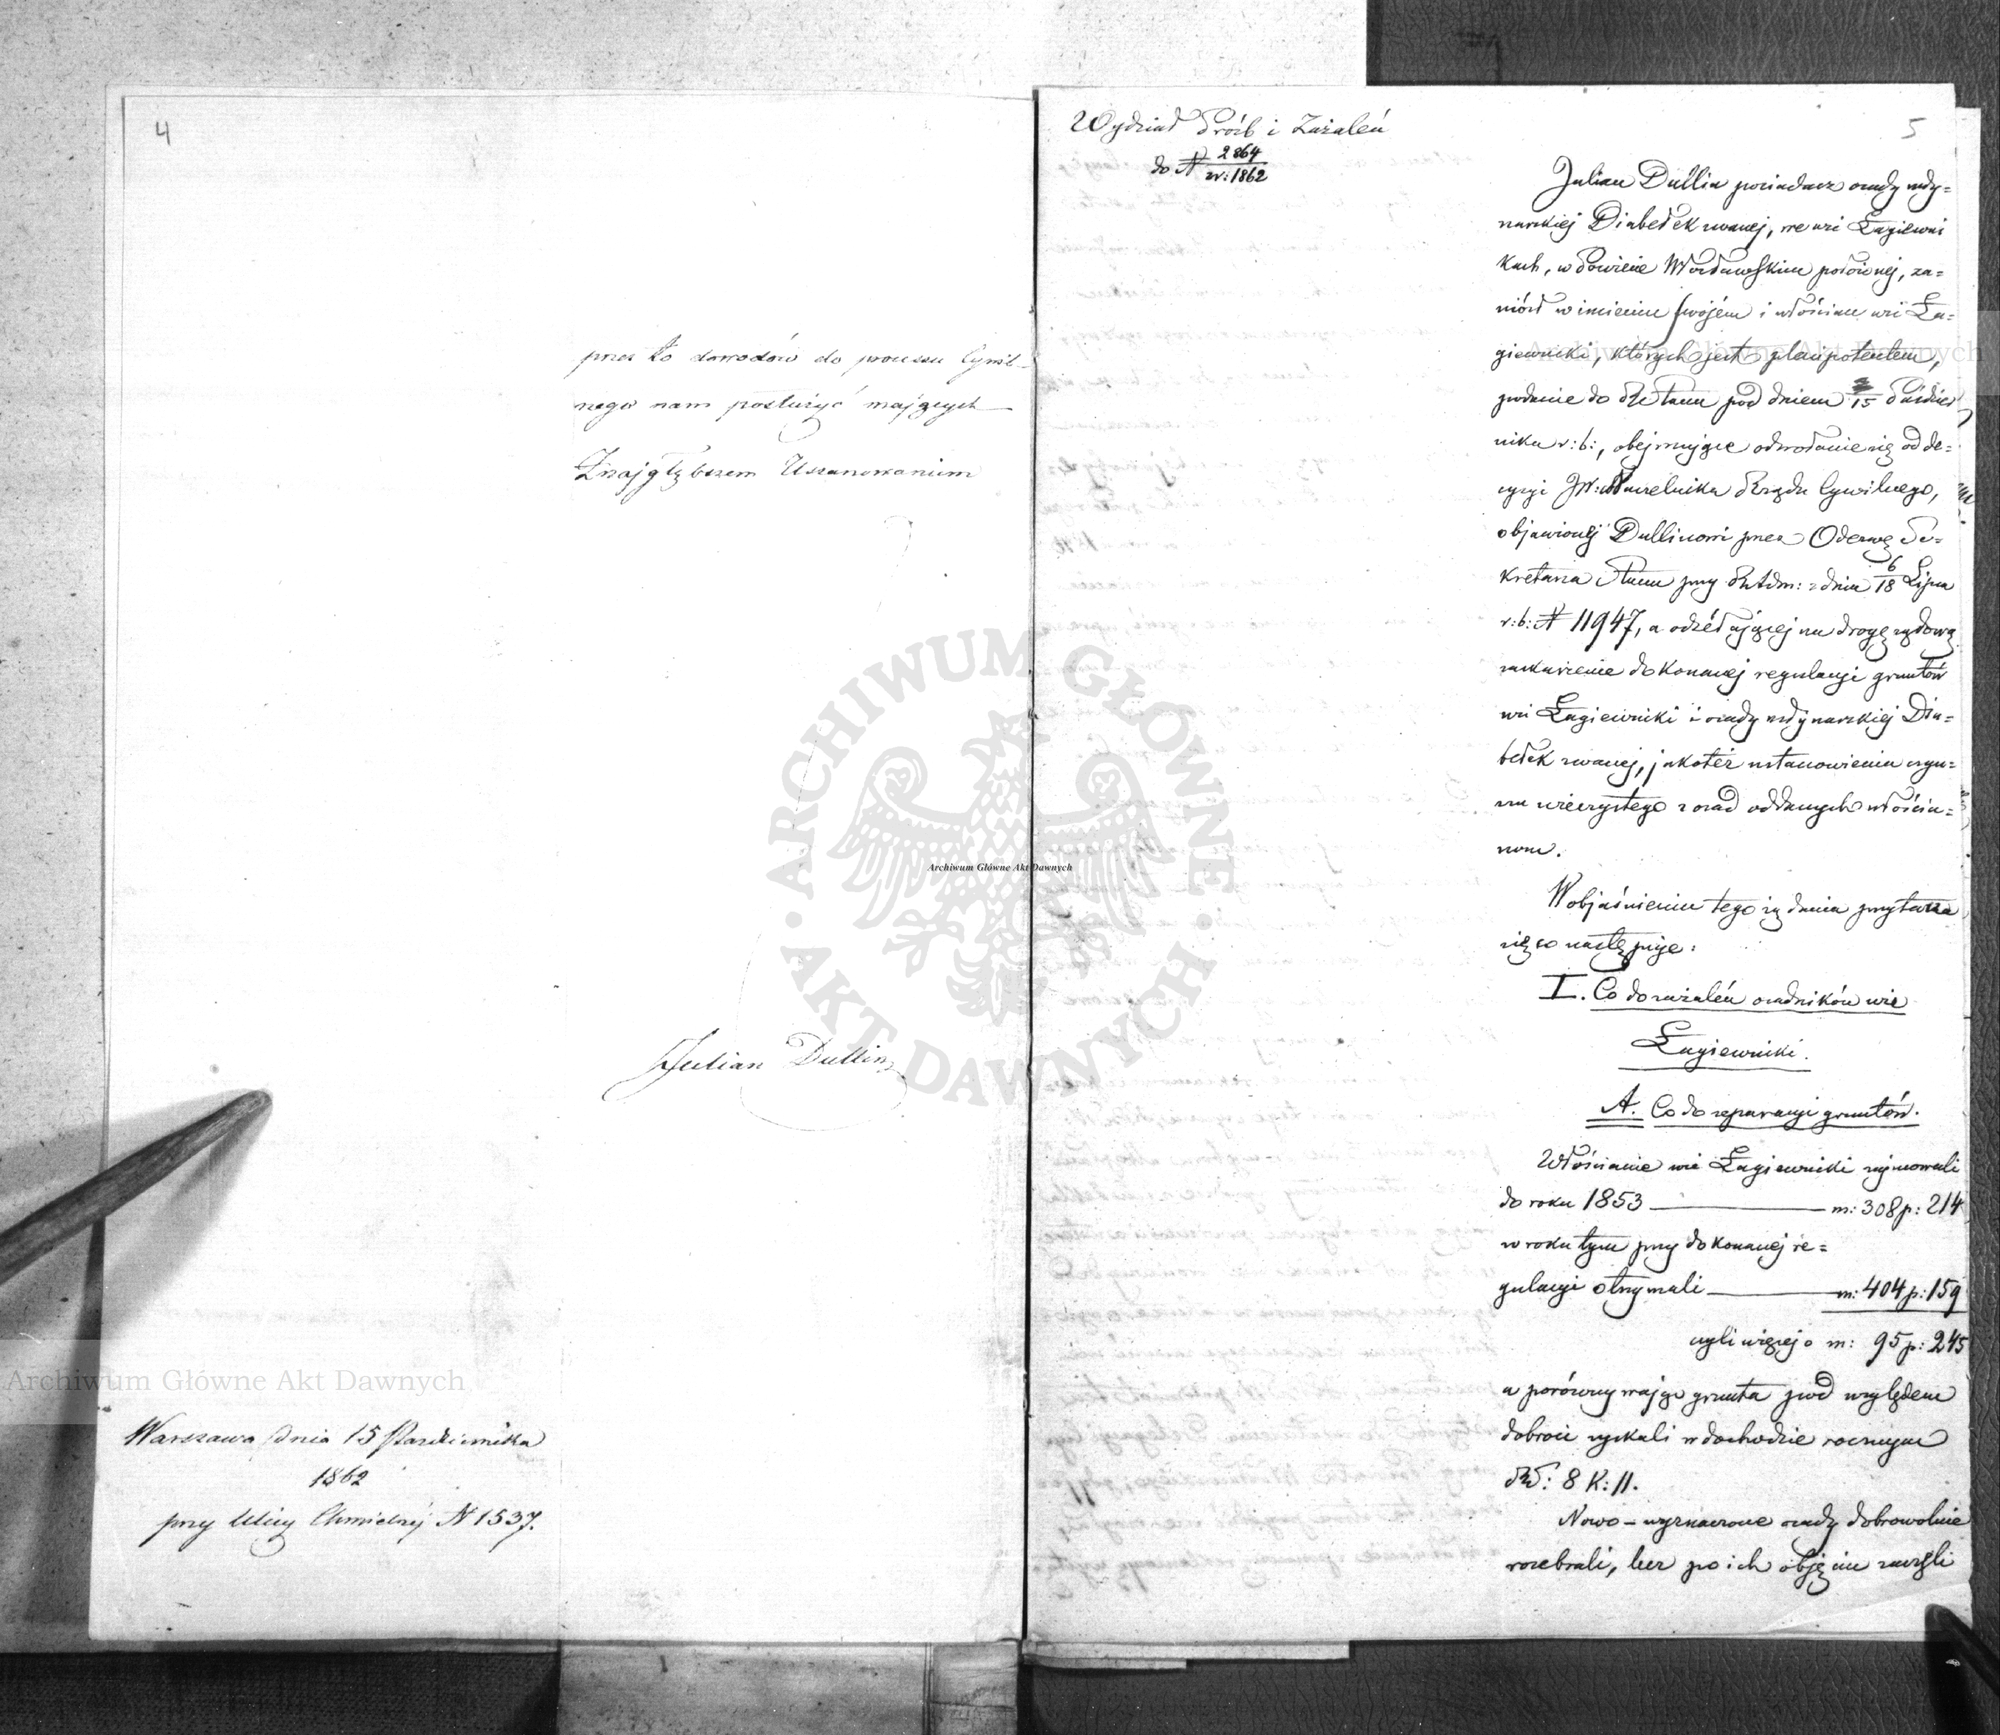 4
przez to dowodów do processu Cywil-
nego nam posłużyć mających
Z najgłębszem Uszanowaniem
Julian Dullin
Warszawa dnia 15 Października
1862
przy Ulicy Chmielnéj N 1537.
5
Wydział Próśb i Zażaleń
do N 2864
r: 1862
Julian Dullin posiadacz osady mły=
narskiej Diabełek zwanej, we wsi Łagiewni
kach, w Powiecie Włocławskim położonej, za=
niósł w imieniu swojém i włościan wsi Ła=
giewniki, których jest plenipotentem,
podanie do Stanu pod dniem 3/15 Paździer
nika r: b:, obejmujące odwołanie się od de=
cyzji JW: Naczelnika Rządu Cywilnego,
objawionej Dullinowi przez Odezwę Se=
kretarza Stanu przy z dnia 6/18 Lipca
r: b: N 11947, a odséłającej na drogę sądową
zaskarżenie dokonanej regulacji gruntów
wsi Łagiewniki i osady młynarskiej Dia=
bełek zwanej, jakoteż ustanowienia czyn=
szu wieczystego z osad oddanych włościa=
nom.
W objaśnieniu tego żądania przytacza
się co następuje:
I. Co do zażaleń osadników wsi
Łagiewniki.
A. Co do separacji gruntów.
Włościanie wsi Łagiewniki zajmowali
do roku 1853 m: 308 p: 214
w roku tym przy dokonanej re=
gulacji otrzymali m: 404 p: 159
czyli więcej o m: 95 p: 245
a porównywając grunta pod względem
dobroci zyskali w dochodzie rocznym
Rs: 8 K: 11.
Nowo-wyznaczone osady dobrowolnie
rozebrali, lecz po ich objęciu zaczęli
Archiwum Główne Akt Dawnych
Archiwum Główne Akt Dawnych
Archiwum Główne Akt Dawnych
ARCHIWUM GŁÓWNE • AKT DAWNYCH •